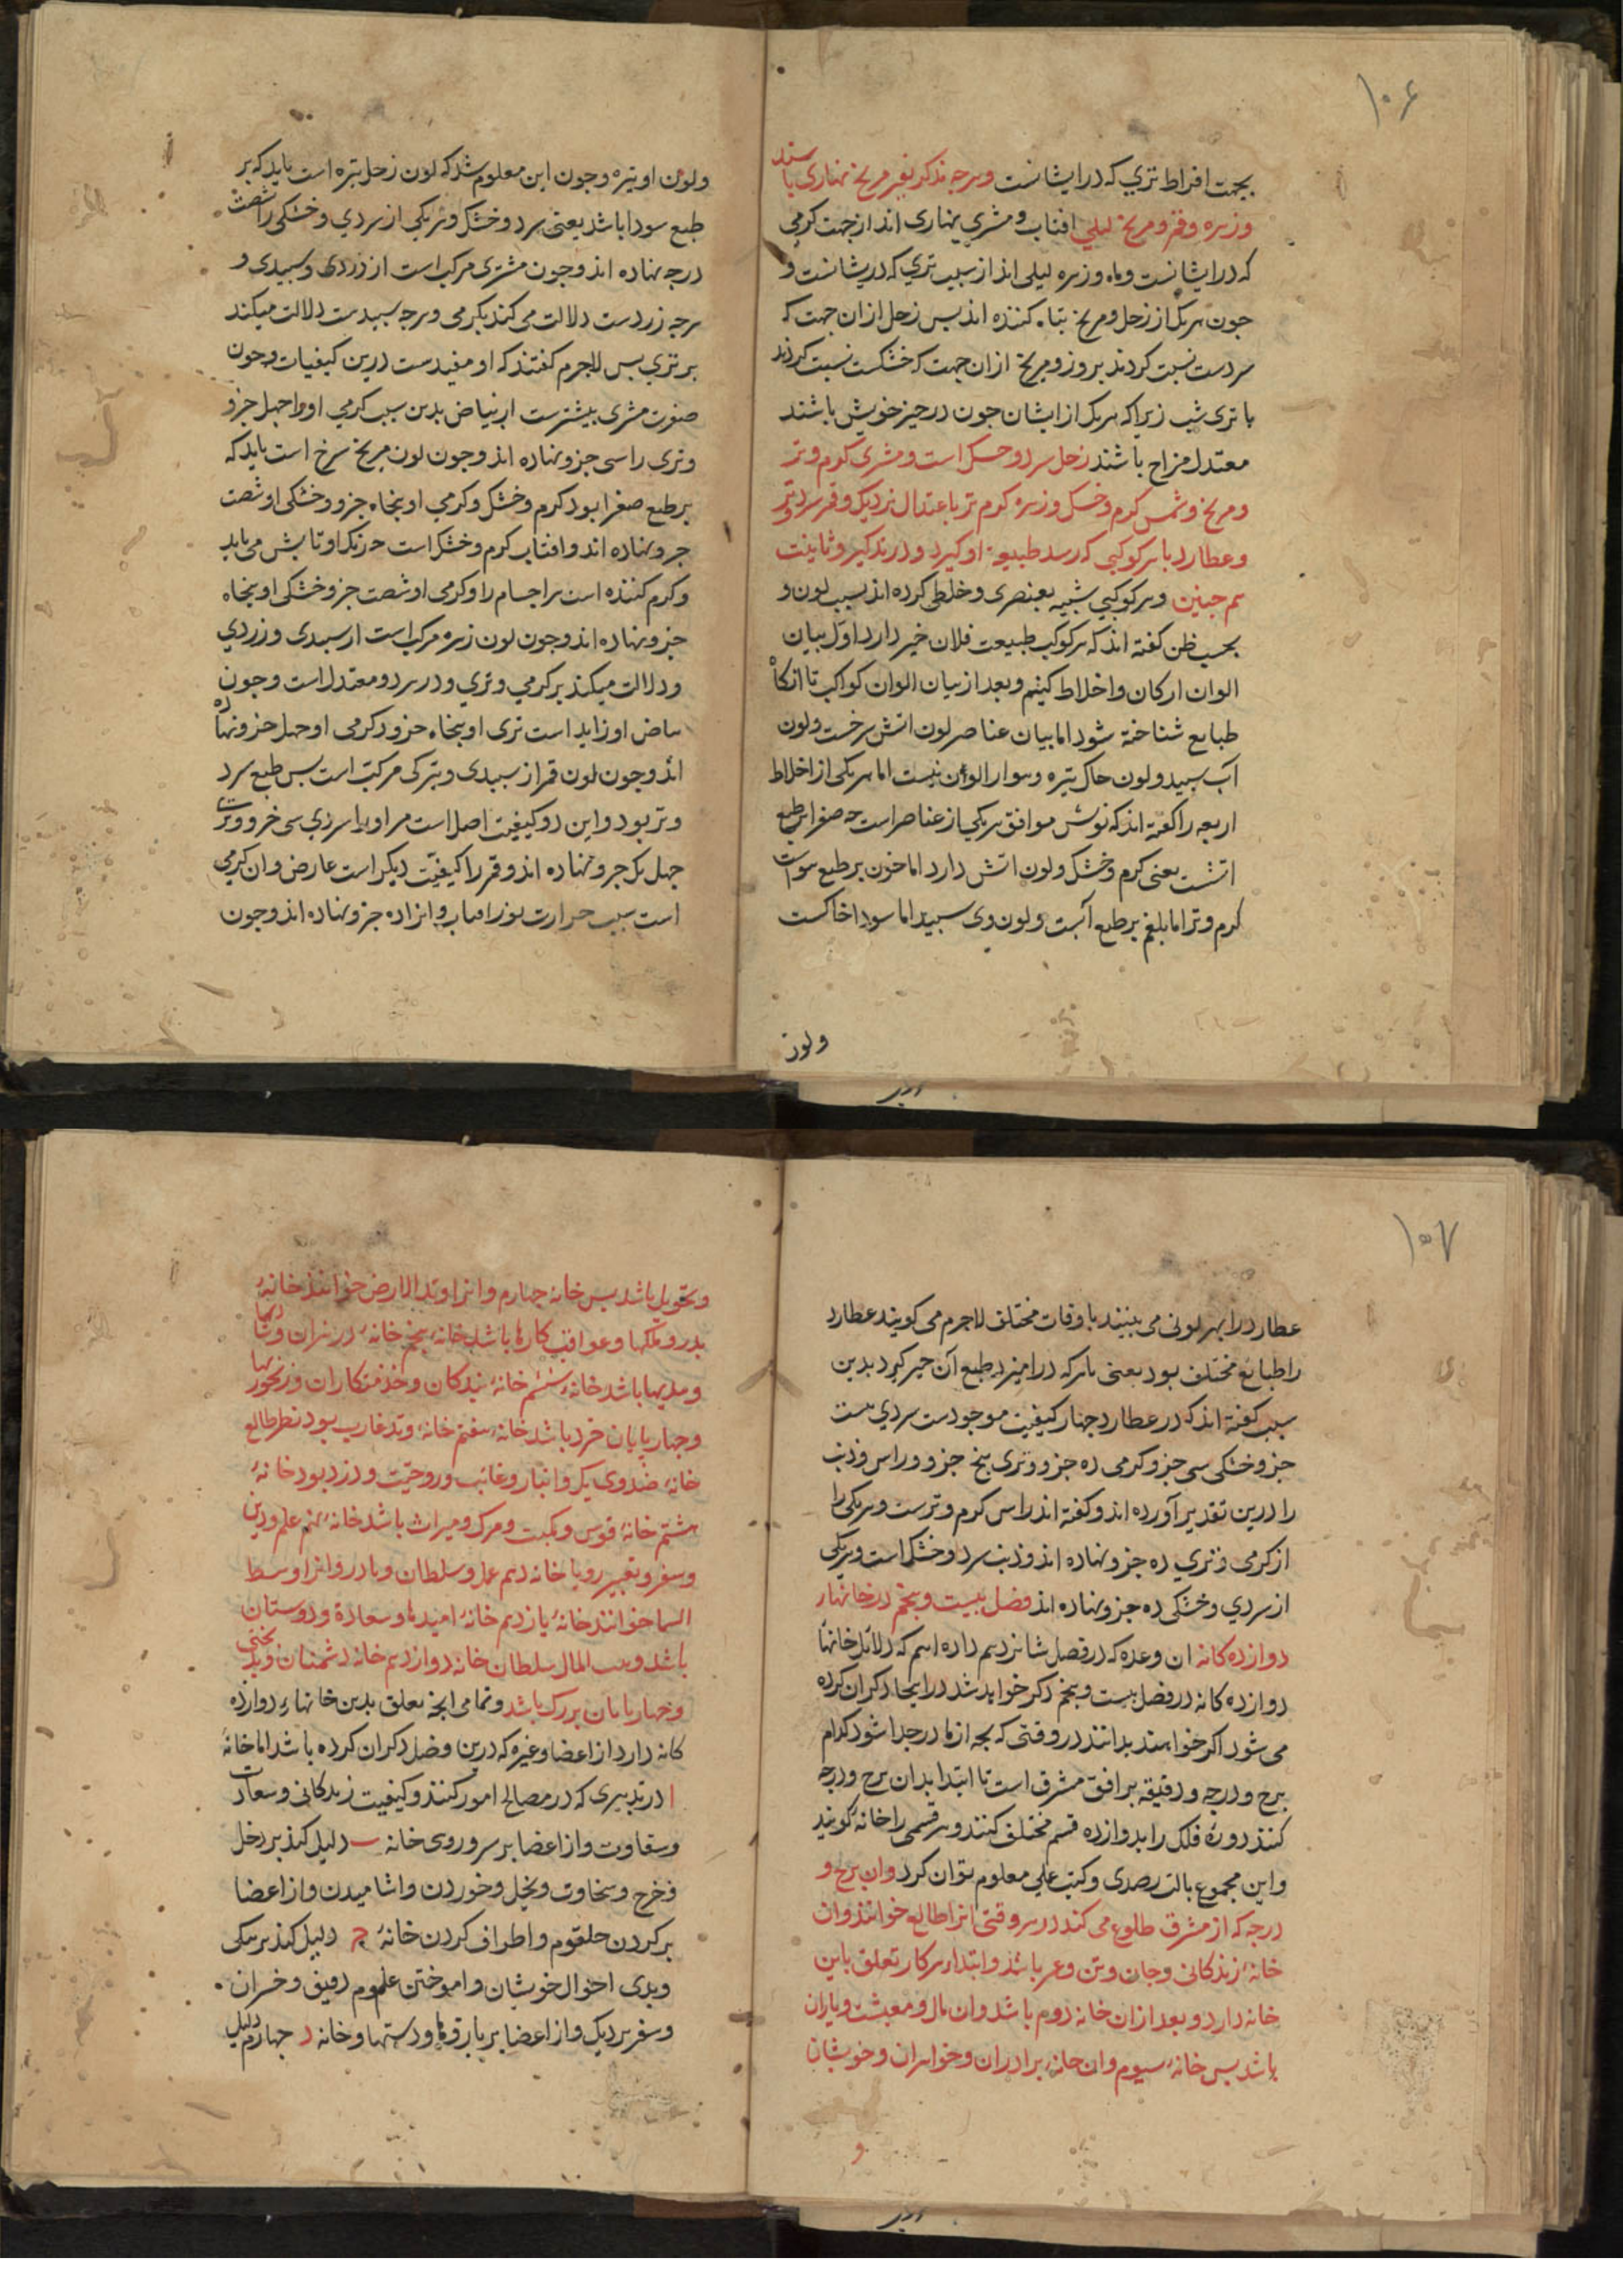 ۱۰۶
بجهت افراط تری که در ایشانست وهرچه مذکرند غیر مریخ نهاری باشند
وزهره وقمر ومریخ لیلی افتاب ومشتری نهاری اند از جهت کرمی
که در ایشانست وماه وزهره لیلی اند از سبب تری که دریشانست و
جون هریک از زحل ومریخ تباه کننده اند بس زحل از ان جهت که
سردست نسبت کردند بروز ومریخ از ان جهت که خشکست نسبت کردند
با تری شب زیرا که هریک از ایشان جون در حیز خویش باشند
معتدل مزاج باشند زحل سرد وخشک است ومشتری کرم وتر
ومریخ وشمس کرم وخشک وزهره کرم تر باعتدال نزدیک وقمر سرد وتر
وعطارد با هر کوکبی که رسد طبیعة او کیرد وذنب کیر وثابت
هم جنین وهر کوکبی شبیه بعنصری وخلطی کرده اند بسبب لون و
بحسب ظن کفته اند که هر کوکب طبیعت فلان خیر دارد اول بیان
الوان ارکان واخلاط کنیم وبعد از بیان الوان کواکب تا انکاه
طبایع شناخته شود اما بیان عناصر لون اتش سرخست ولون
آب سبید ولون خاک تیره وهوا را لون نیست اما هریکی از اخلاط
اربعه را کفته اند که لونش موافق هریکی از عناصر است جه صفرا بر طبع
اتشست یعنی کرم وخشک ولون اتش دارد اما خون بر طبع هواست
کرم وتر اما بلغم بر طبع آبست ولون وی سبید اما سودا خاکست
ولون
ولون او تیره وجون این معلوم شد که لون زحل تیره است باید که بر
طبع سودا باشد یعنی سرد وخشک وهریکی از سردی وخشکی را شصت
درجه نهاده اند وجون مشتری مرکب است از زردی وسبیدی و
هرجه زردست دلالت می کند بکرمی وهرجه سبیدست دلالت میکند
بر تری بس لاجرم کفتند که او مفیدست درین کیفیات وجون
صفرت مشتری بیشترست از بیاض بدین سبب کرمی او را جهل جزو
وتری را سی جزو نهاده اند وجون لون مریخ سرخ است باید که
بر طبع صفرا بود کرم وخشک وکرمی او بنجاه جزو وخشکی او شصت
جزو نهاده اند وافتاب کرم وخشک است جه رنک او تابش می یابد
وکرم کننده است مر اجسام را وکرمی او شصت جزو خشکی او بنجاه
جزو نهاده اند وجون لون زهره مرکب است از سبیدی وزردی
ودلالت میکند بر کرمی وتری ودر هر دو معتدل است وجون
بیاض او زاید است تری او بنجاه جزو وکرمی او جهل جزو نهاده
اند وجون لون قمر از سبیدی وتیرکی مرکب است بس طبع سرد
وتر بود واین دو کیفیت اصل است مر او را سردی سی جزو وترت
جهل یک جزو نهاده اند وقمر را کیفیت دیکر است عارض وان کرمی
است بسبب حرارت نور افتاب وانرا ده جزو نهاده اند وجون
۱۰۷
عطارد را بهر لونی می بینند باوقات مختلف لاجرم می کویند عطارد
را طبایع مختلف بود یعنی با هرکه درامیزد طبع آن جیز کیرد بدین
سبب کفته اند که در عطارد جهار کیفیت موجودست سردی بیست
جزو خشکی سی جزو کرمی ده جزو وتری بنج جزو وراس وذنب
را درین تقدیر آورده اند وکفته اند راس کرم وترست وهریکی را
از کرمی وتری ده جزو نهاده اند وذنب سرد وخشک است وهریکی
از سردی وخشکی ده جزو نهاده اند فصل بیست وبنجم در خانهاء
دوازده کانه ان وعده که در فصل شانزدهم داده ایم که دلایل خانهاء
دوازده کانه در فصل بیست وبنجم ذکر خواهد شد در اینجا ذکر ان کرده
می شود اکر خواهند بدانند در وقتی که بجه از مادر جدا شود کدام
برج ودرجه ودقیقه بر افق مشرق است تا ابتدا بدان برج ودرجه
کنند دورهٔ فلک را بدوازده قسم مختلف کنند وهر قسمی را خانه کویند
واین مجموع بالت رصدی وکتب علمی معلوم توان کرد وان برج و
درجه که از مشرق طلوع می کند در هر وقتی انرا طالع خوانند وان
خانهٔ زندکانی وجان وتن وعمر باشد وابتداء هر کار تعلق باین
خانه دارد وبعد از ان خانهٔ دوم باشد وان مال ومعیشت ویاران
باشد بس خانهٔ سیوم وان خانهٔ برادران وخواهران وخویشان
و
وتحویل باشد بس خانهٔ جهارم وانرا وتد الارض خوانند خانهٔ
بدر وملکها وعواقب کارها باشد خانهٔ بنجم خانهٔ فرزندان
وهدیها باشد خانهٔ ششم خانهٔ بندکان وخدمتکاران ورنجوریها
وجهاربایان خرد باشد خانهٔ هفتم خانهٔ وتد غارب بود نظیر طالع
خانهٔ ضدوی یکر وانباز وغائب وزوجیت ودزد بود خانهٔ
هشتم خانهٔ قوس ونکبت ومرک ومیراث باشد خانهٔ نهم علم ودین
وسفر وتعبیر رویا خانهٔ دهم عمل وسلطان ومادر وانرا وسط
السما خوانند خانهٔ یازدهم خانهٔ امیدها وسعادة ودوستان
باشد وبیت المال سلطان خانه دوازدهم خانه دشمنان وبدبختی
وجهاربایان بزرک باشد وتمامی انجه تعلق بدین خانهاء دوازده
کانه دارد از اعضا وغیره که درین فصل ذکر ان کرده باشد اما خانهٔ
ا در تدبیری که در مصالح امور کنند وکیفیت زندکانی وسعادت
وسقاوت واز اعضا بر سر وروی خانه ب دلیل کند بر دخل
وخرج وسخاوت وبخل وخوردن واشامیدن واز اعضا
بر کردن حلقوم واطراف کردن خانهٔ ج دلیل کند بر نیکی
وبدی احوال خویشان واموختن علوم رفیق وخسران
وسفر نزدیک واز اعضا بر بازوها ودستها وخانه د جهارم دلیل